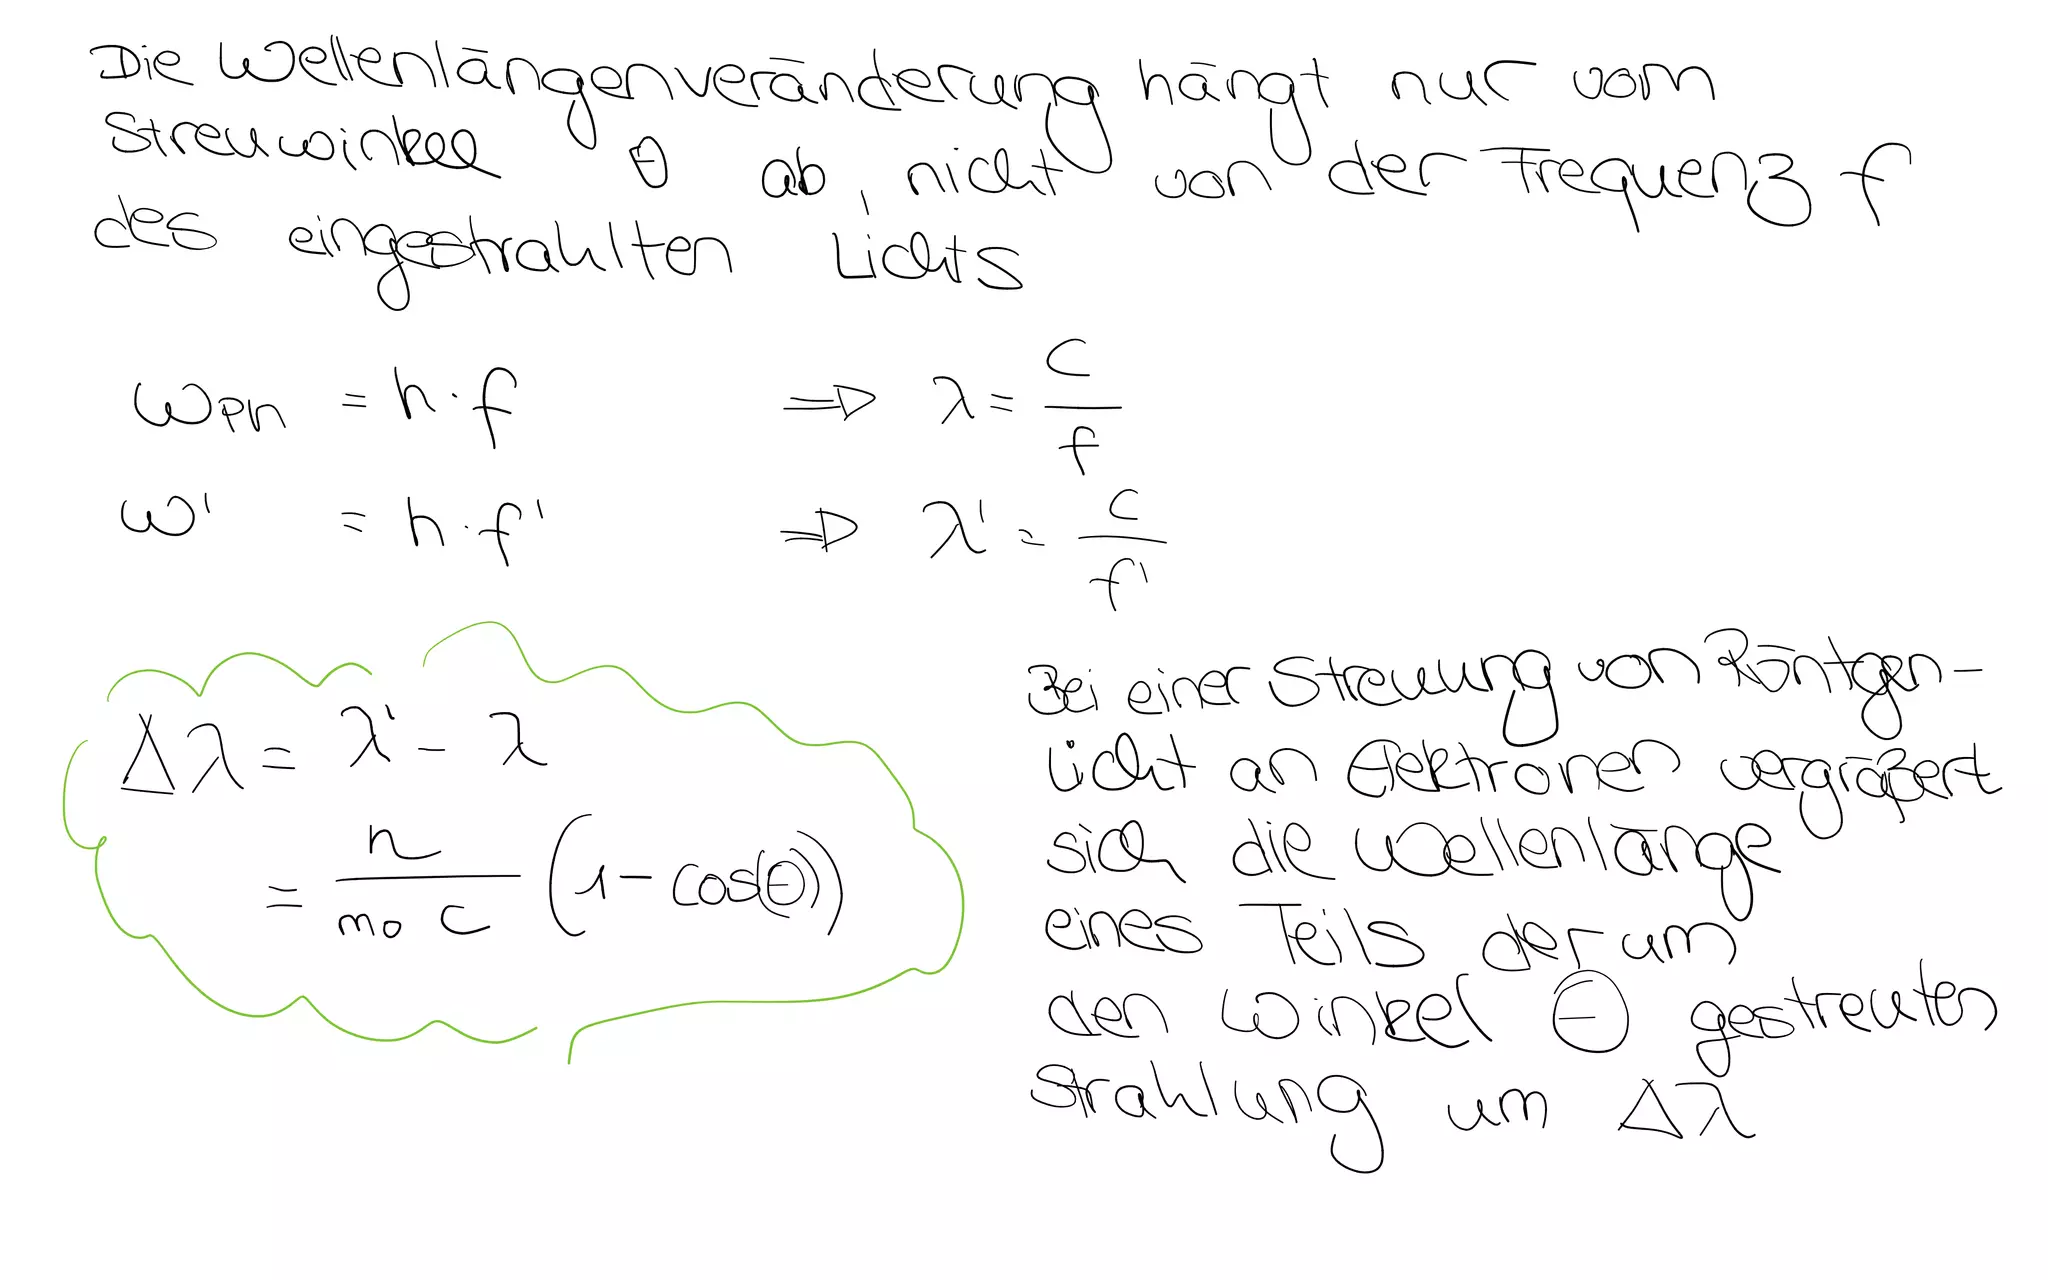 Die Wellenlängenveränderung hängt nur vom
Streuwinkel θ ab, nicht von der Frequenz f
des eingestrahlten Lichts
W_Ph = h · f ⇒ λ = c / f
W' = h · f' ⇒ λ' = c / f'
Δλ = λ' - λ
= h / (m₀ c) (1 - cos(θ))
Bei einer Streuung von Röntgen-
licht an Elektronen vergrößert
sich die Wellenlänge
eines Teils der um
den Winkel θ gestreuten
Strahlung um Δλ